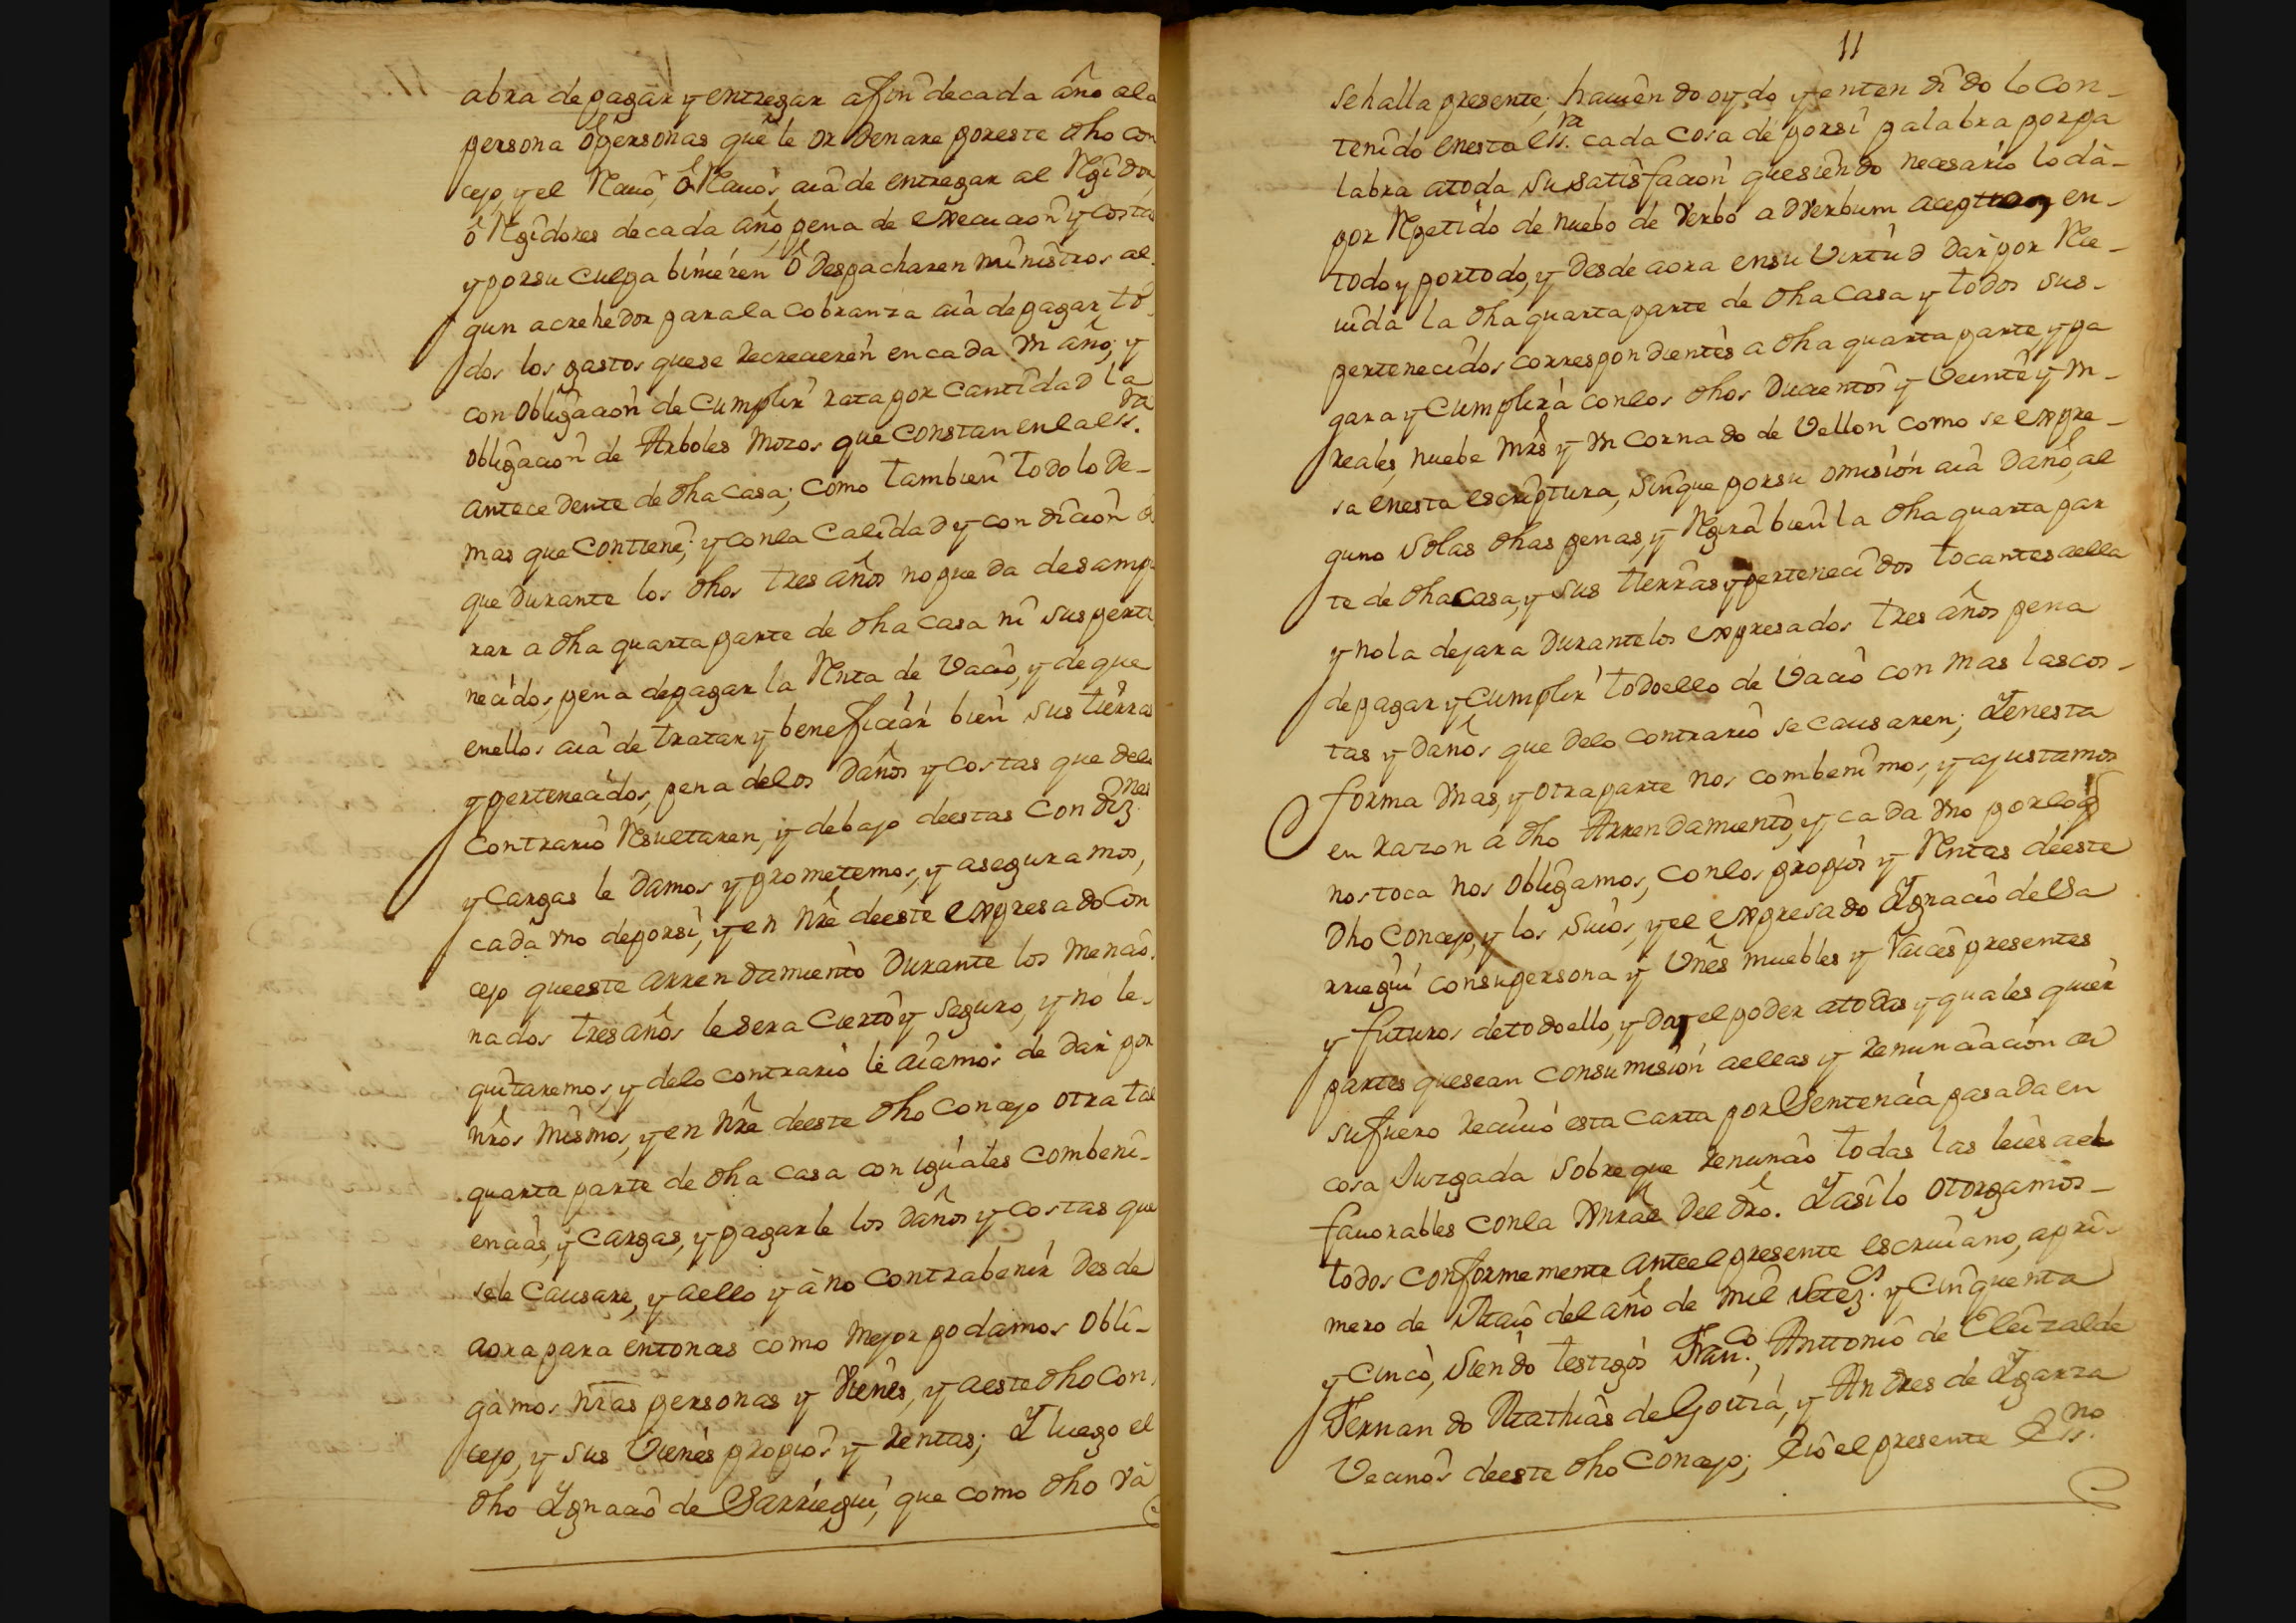 abra de pagar y entregar a fin de cada año ala
persona ô personas que le ordenare por este dho con
cejo, y el Reciuo, ô Reciuos aiâ de entregar al Regidor,
ô Regidores de cada año, pena de execucion y costas
y por su culpa biniēren ô despacharen ministros al-
gun acrehedor para la cobranza aiâ de pagar to-
dos los gastos que se recrecieren en cada vn año; y
con obligacion de cumplir rata por cantidad la
obligacion de Arboles mozos que constan en la ess.ra
antecedente de dha casa; como tambien todo lo de-
mas que contiene; y con la calidad y condicion
que durante los dhos tres años no pueda desampa
rar a dha quarta parte de dha casa ni sus perte
necidos, pena de pagar la Renta de Vacio, y de que
enellos aiâ de tratar y beneficiar bien sus tierras
y pertenecidos, pena delos daños y costas que delo
contrario Resultaren, y debajo deestas condiz.nes
y cargas le damos y prometemos, y aseguramos,
cada vno deporsi, y en nrê deeste expresado Con
cejo queeste arrendamiento durante los mencio-
nados tres años le sera cierto y seguro, y no le-
quitaremos, y delo contrario le aiamos de dar por
nrôs mismos, y en nrê deeste dho Concejo otra tal
quarta parte de dha casa con iguales combeni-
encias, y cargas, y pagarle los daños y costas que
sele causare, y aello y â no contrabenir desde
aora para entonces como mejor podamos obli-
gamos nrâs personas y vienes, y aeste dho Con
cejo, y sus vienes propios y rentas; Y luego el
dho Ygnacio de Sarriegui, que como dho vâ
11
sehalla presente; hauiendo oydo y entendido lo con-
tenido enesta ess.ra cada cosa de porsi palabra porpa
labra atoda su satisfacion que siendo necesario lo dâ-
por Repetido de nuebo de verbo adverbum aceptta en-
todo y portodo, y desde aora ensu virtud da por Reci-
uida la dha quarta parte de dha casa y todos sus-
pertenecidos correspondientes a dha quarta parte, y pa
gara y cumplira con los dhos ducientos y veinte y vn-
reales, nuebe mrs y vn cornado de vellon como se expre-
sa enesta escriptura, sinque porsu omision aiâ daño al
guno so las dhas penas, y Regira bien la dha quarta par
te de dha casa, y sus tierras y pertenecidos tocantes aella
y no la dejara durante los expresados tres años pena
de pagar y cumplir todoello de vacio con mas las cos-
tas y daños que delo contrario se causaren; Y enesta
forma vnas, y otra parte nos combenimos, y ajustamos
en razon â dho Arrendamiento, y cada vno porlo q
nos toca nos obligamos, con los propios y Rentas deeste
dho Concejo, y los suios, y el expresado Ygnacio deSa
rriegui consupersona y vnês muebles y raices presentes
y futuros de todoello, y doy el poder atodas y quales quier
partes quesean consumision aellas y renunciacion de
sufuero reciuio esta carta por Sentencia pasada en
cosa Juzgada sobre que renuncio todas las leies de
fauorables con la Xnrâl del dro. Y asilo otorgamos-
todos conformemente anteel presente escriuano, a pri-
mero de Maio del año de mil setez.s y cinquenta
y cinco, siendo testigos Fran.co Anttonio de Eleizalde
Fernando Mathias de Goitia, y Andres de Ygarza
Vecinos deeste dho Concejo; E io el presente Ess.no